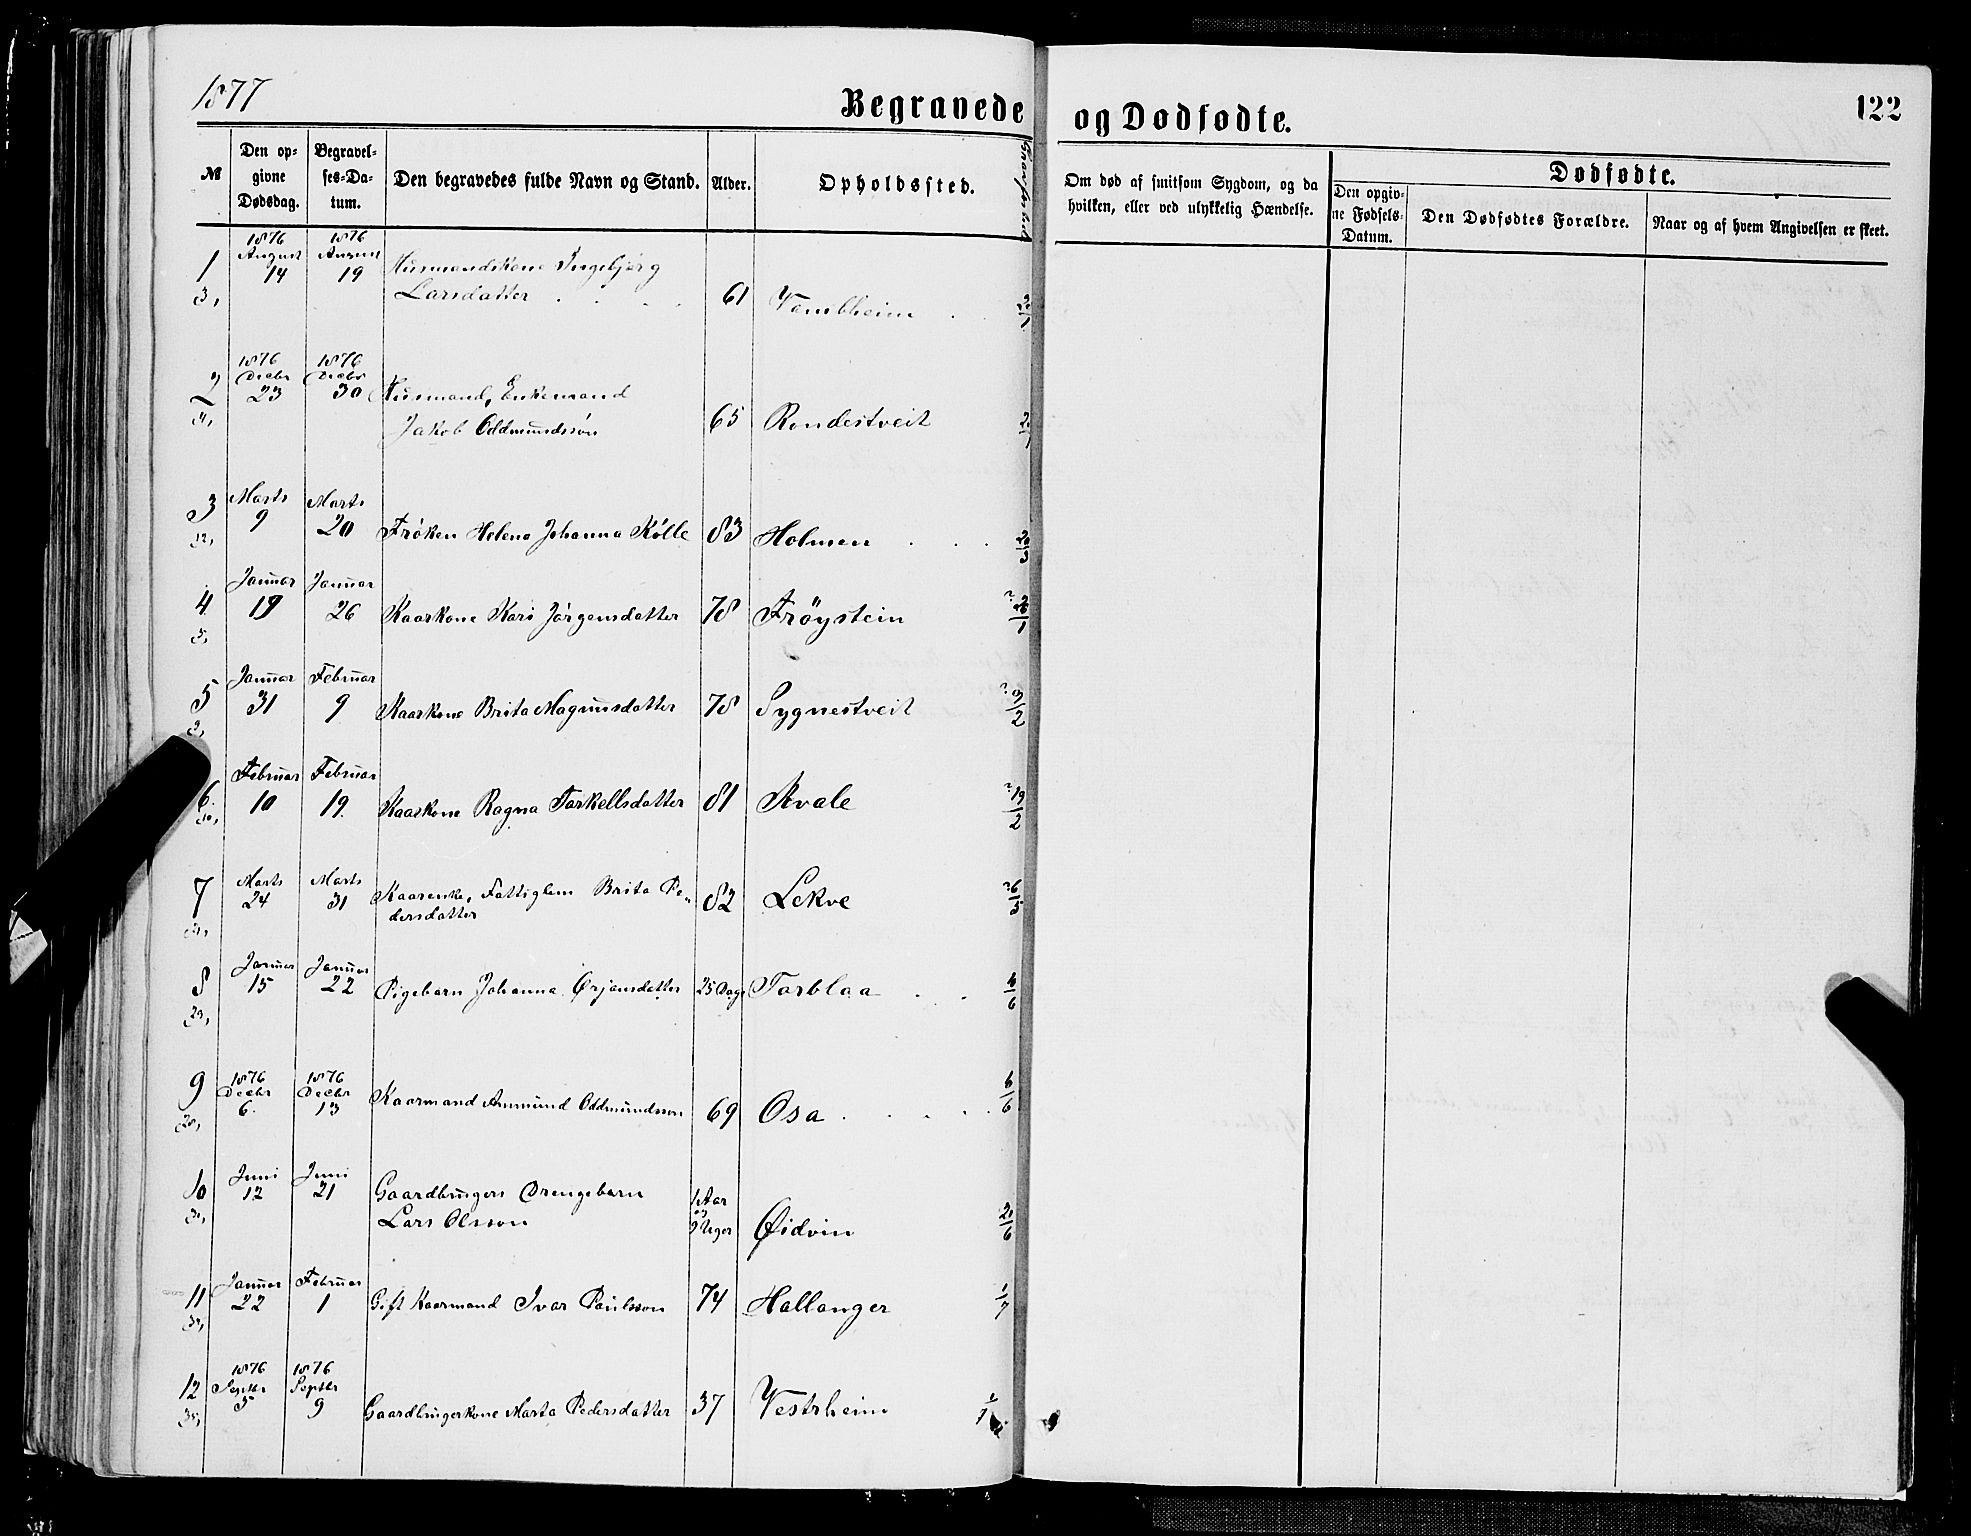 1877
Begravede og Dødfødte.
122
№
Den opgivne Dødsdag.
Begravelses-Datum.
Den begravedes fulde Navn og Stand.
Alder.
Opholdssted.
Om død af smitsom Sygdom, og da hvilken, eller ved ulykkelig Hændelse.
Dødfødte.
Den opgivne Fødsels-Datum.
Den Dødfødtes Forældre.
Naar og af hvem Angivelsen er skeet.
1 1876 August 14 1876 August 19 Husmandskone Ingebjørg
Larsdatter 61
2 1876 Decbr 23 1876 Decbr 30 Husmand, Enkemand
Jakob Oddmundssøn 65 Rondestveit
3 Marts 9 Marts 20 Frøken Helena Johanna Kölle 83 Holmen 20/3
4 Januar 19 Januar 26 Kaarkone Kari Jørgensdatter 78 Frøystein 26/1
5 Januar 31 Februar 9 Kaarkone Brita Magnusdatter 78 Sygnestveit 9/2
6. Februar 10 Februar 19. Kaarkone Ragna Torkellsdatter 81 Kvale 19/2
7 Marts 24 Marts 31 Kaarenke, Fattiglem Brita Pe-
dersdatter 82 Lekve
8 Januar 15 Januar 22 Pigebarn Johanna Ørjansdatter 25 Dage Torblaa
9 1876 Decbr 6. 1876 Decbr 13 Kaarmand Amund Oddmundsson 69 Osa
10 Juni 12 Juni 21 Gaardbrugers Drengebarn
Lars Olsson 1 Aar og 9 Uger Øidvin
11 Januar 22 Februar 1 Gift Kaarmand Ivar Paulsson 74 Hallanger 1/7
12 1876 Septbr 5 1876 Septbr 9 Gaardbrugerkone Marta Pedersdatter 37 Vestrheim